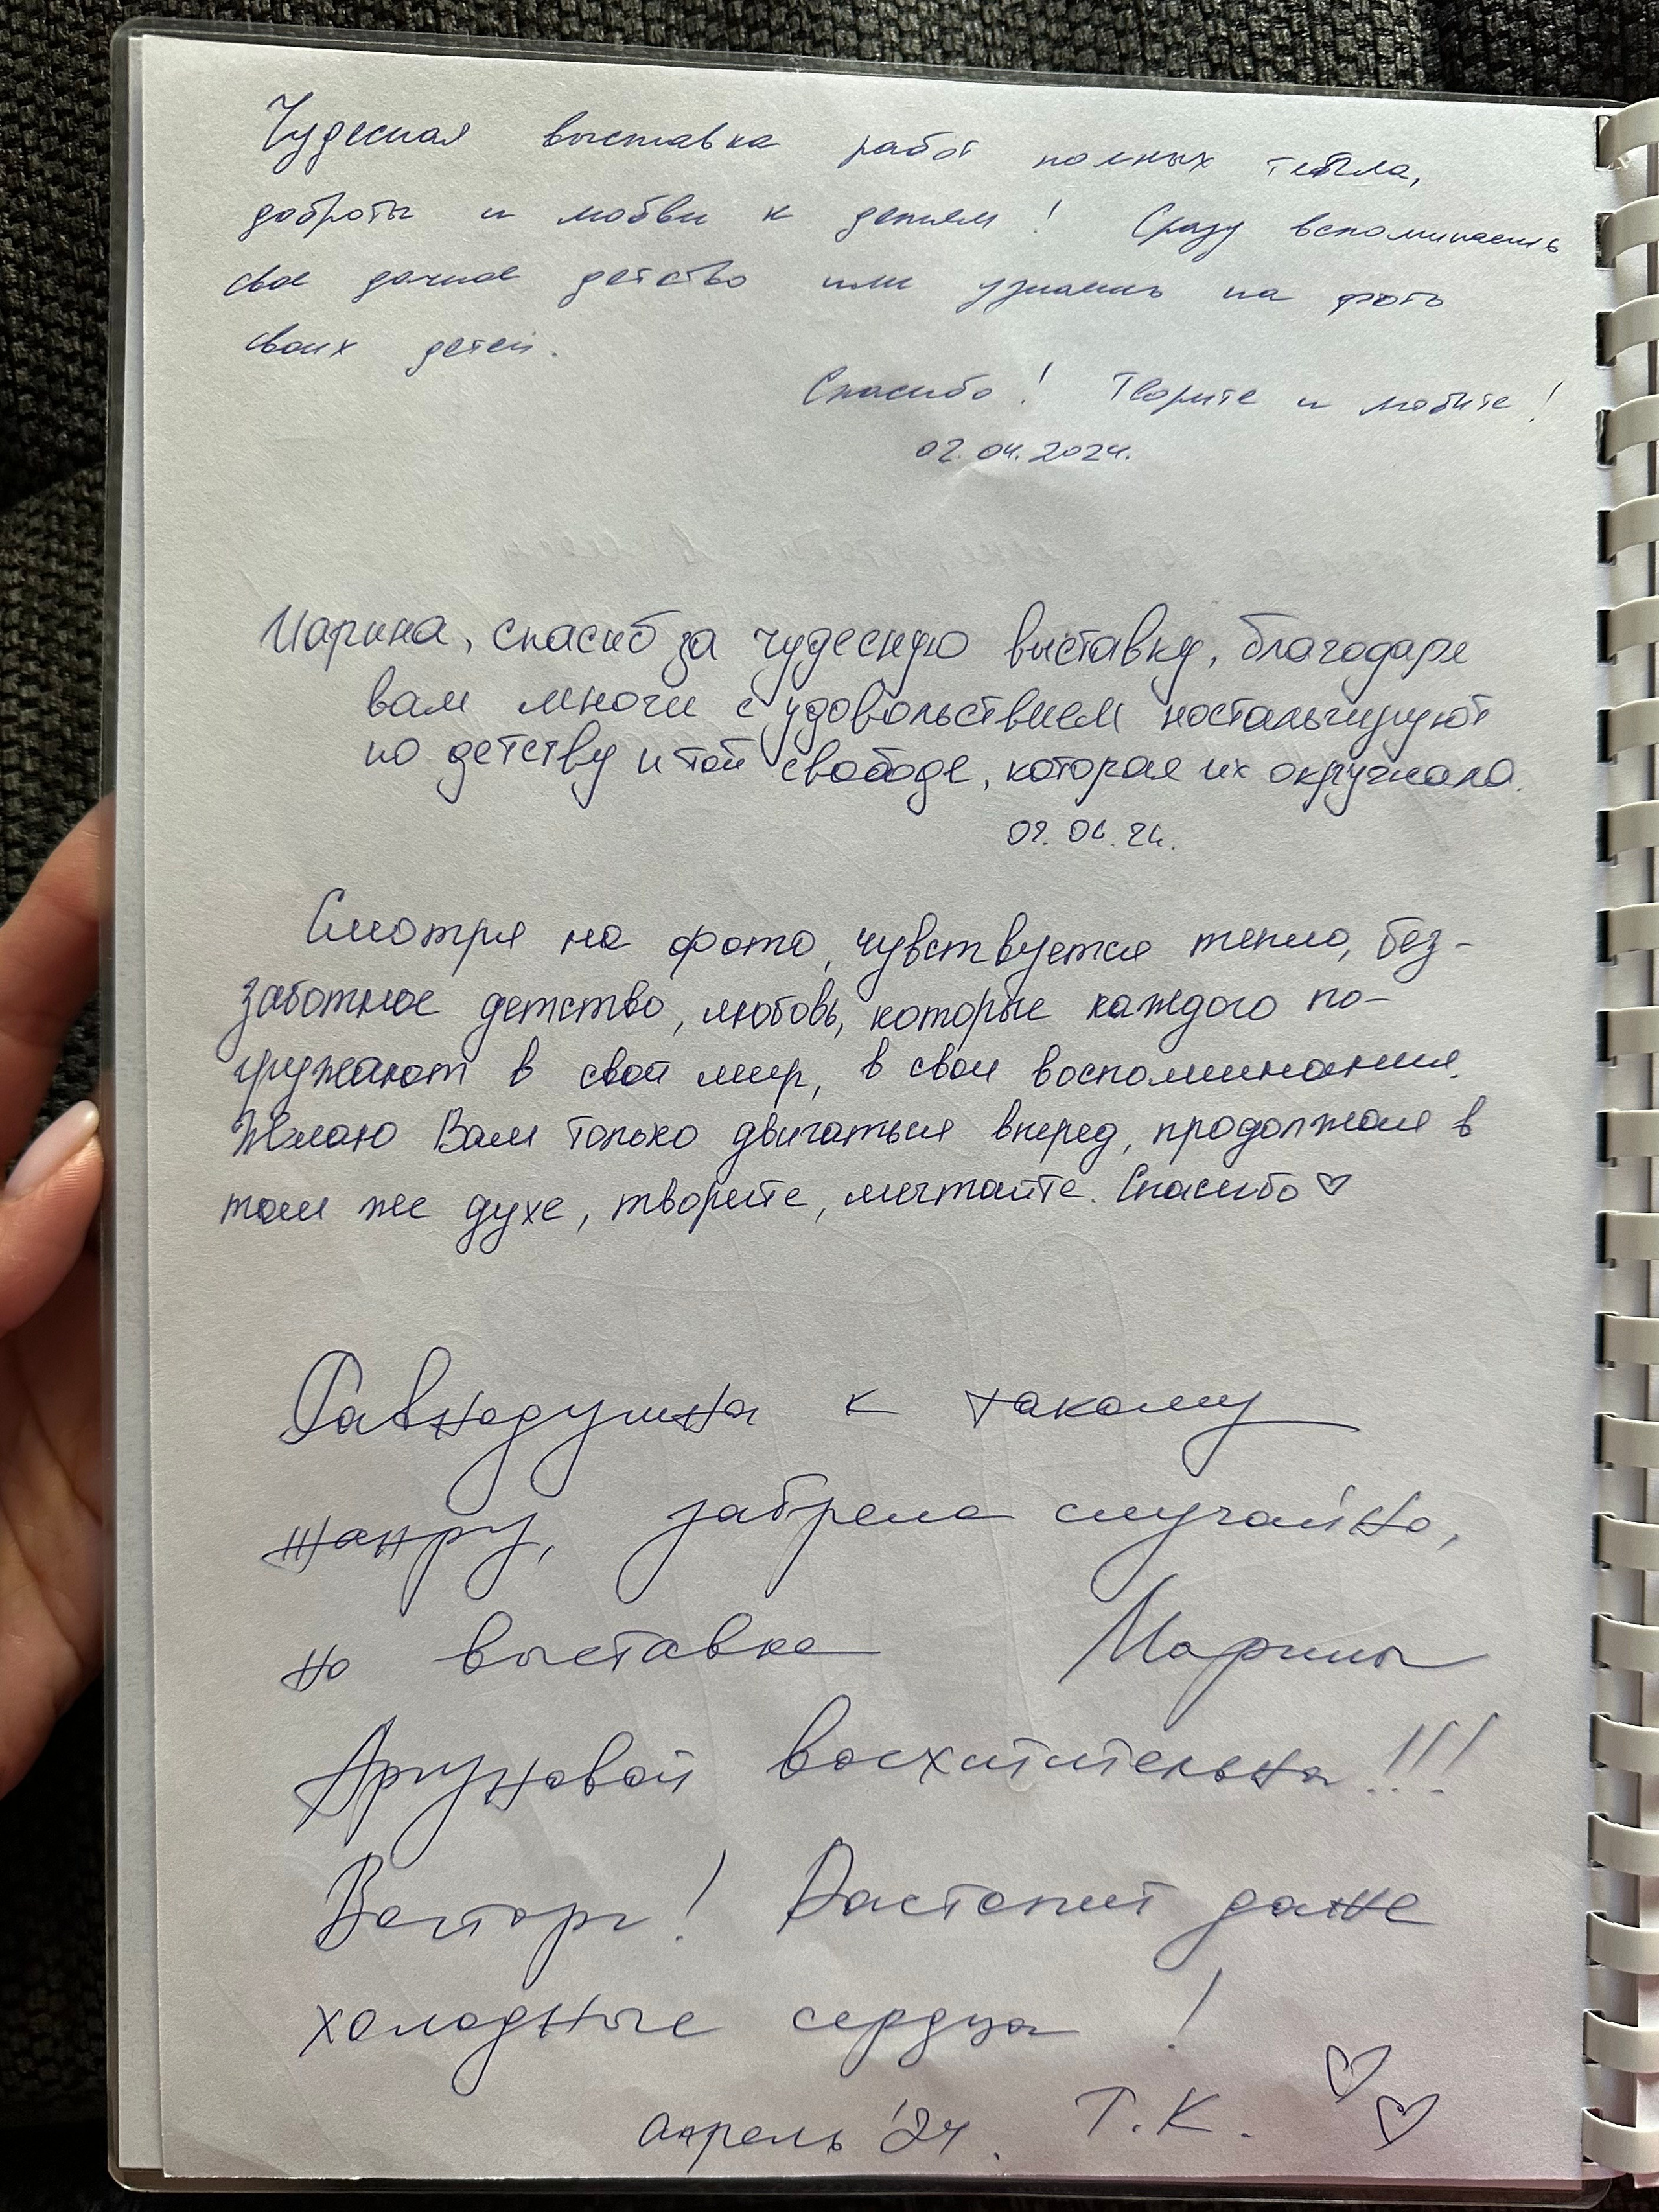 Чудесная выставка работ полных тепла,
доброты и любви к детям! Сразу вспоминаешь
свое дачное детство или узнаешь на фото
своих детей.
Спасибо! Творите и любите!
02.04.2024.
Марина, спасиб за чудесную выставку, благодаря
вам многи с удовольствием ностальгируют
по детству и той свободе, которая их окружала.
02.04.24.
Смотря на фото, чувствуется тепло, без-
заботное детство, любовь, которые каждого по-
гружают в свой мир, в свои воспоминания.
Желаю Вам только двигаться вперед, продолжая в
том же духе, творите, мечтайте. Спасибо ♡
Равнодушна к такому
жанру, забрела случайно,
но выставка Марины
Аргуновой восхитительна!!!
Восторг! Растопит даже
холодные сердца!
апрель '24. Т.К.